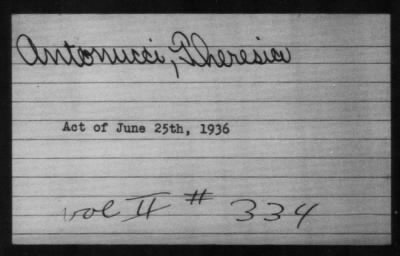 Antonucci, Theresia
Act of June 25th, 1936
vol II # 334